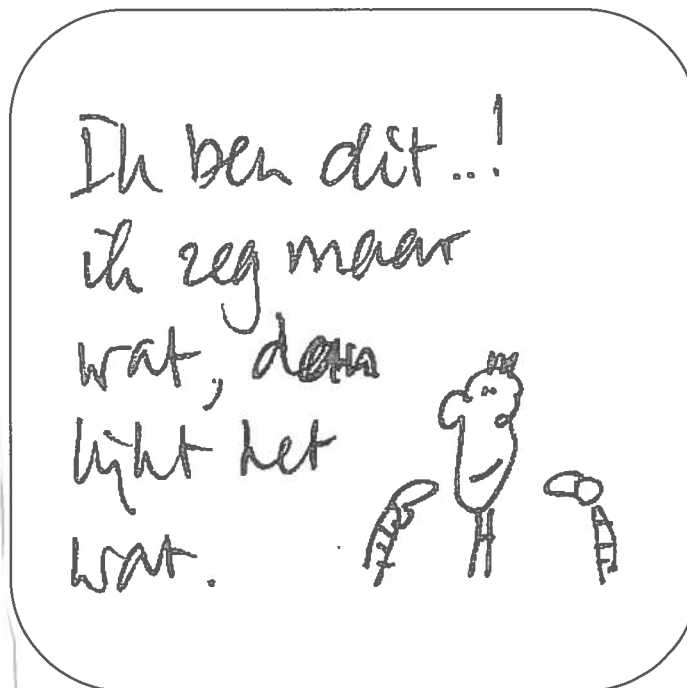 Ik ben dit..!
ik zeg maar
wat, dan
lijkt het
wat.